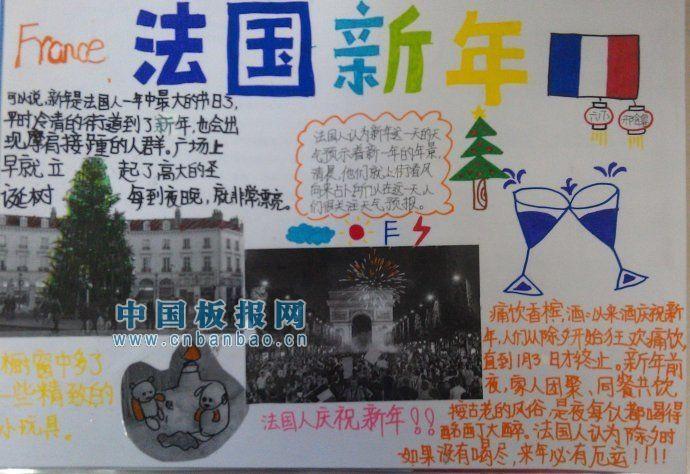 France
法国新年
可以说,新年是法国人一年中最大的节日了,
平时冷清的街道到了新年,也会出
现摩肩接踵的人群。广场上
早就立 起了高大的圣
诞树 每到夜晚,就非常漂亮。
法国人认为新年这一天的天
气预示着新一年的年景,
清晨,他们就上街看风
向来占卜所以在这一天人
们很关注天气预报。
六小
中国板报网
www.cnbanbao.cn
橱窗中多了
一些精致的
小玩具。
法国人庆祝新年!!
痛饮香槟,酒以来酒庆祝新
年,人们从除夕开始狂欢痛饮,
直到1月3日才终止。新年前
夜,家人团聚,同餐共饮
按古老的风俗,是夜每位都喝得
酩酊大醉。法国人认为除夕时
如果没有喝尽,来年必有厄运!!!!